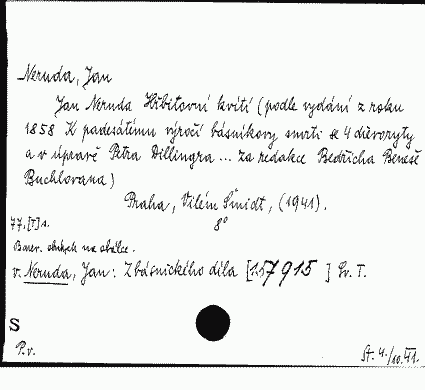 Neruda, Jan
Jan Neruda Hřbitovní kvítí (podle vydání z roku
1858 K padesátému výročí básníkovy smrti se 4 dřevoryty
a v úpravě Petra Dillingra ... za redakce Bedřicha Beneše
Buchlovana)
Praha, Vilém Šmidt, (1941).
8°
77, [I] s.
Barev. obrázek na obálce.
v. Neruda, Jan: Z básnického díla [ 7915 ] Sv. I.
S
P.v.
St. 4./10.VI.